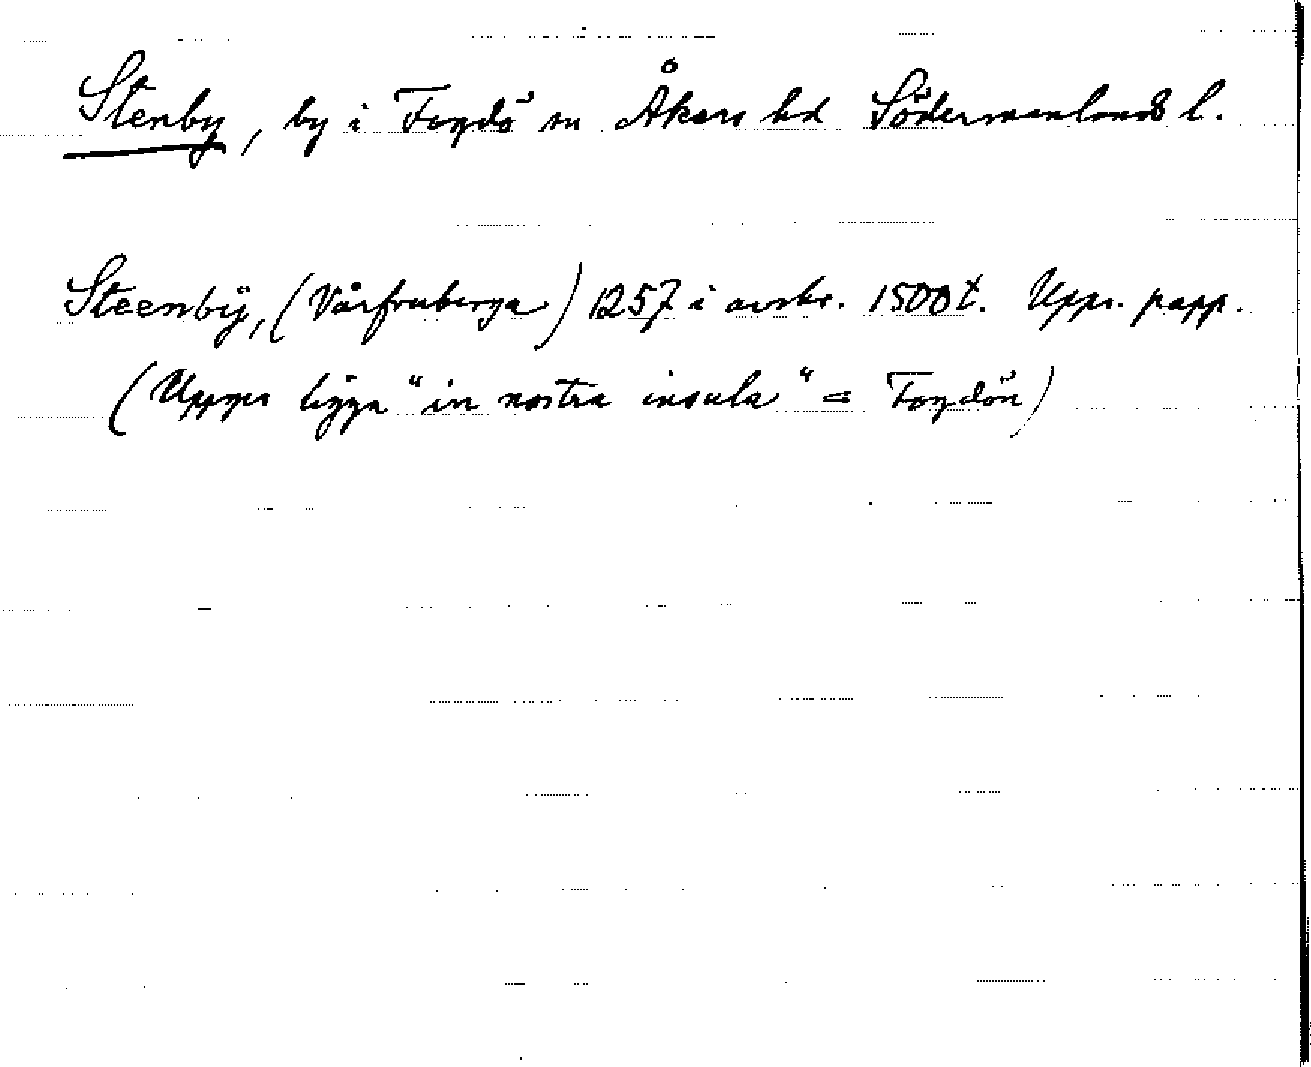 Stenby, by i Fogdö sn Åkers hd Södermanlands l.
Steenbÿ, (Vårfruberga) 1257 i avskr. 1500 t. Upps. papp.
(Uppges ligga "in nostra insula" = Fogdön)